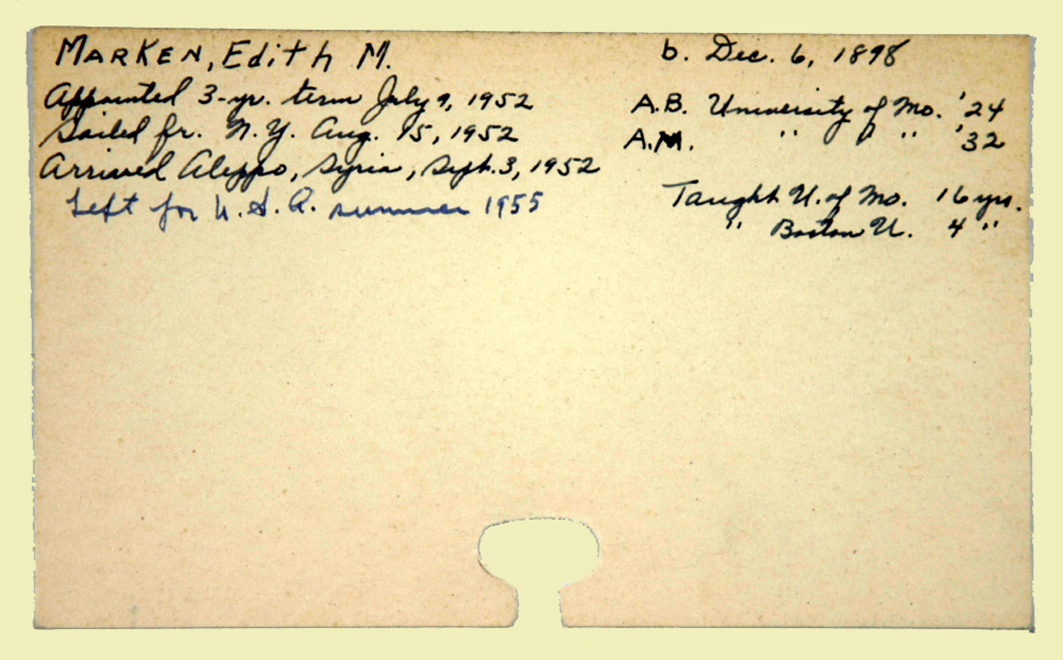 MARKEN, Edith M.
b. Dec. 6, 1898
Appointed 3-yr. term July 9, 1952
Sailed fr. N.Y. Aug. 15, 1952
Arrived Aleppo, Syria, Sept. 3, 1952
Left for U.S.A. summer 1955
A.B. University of Mo. '24
A.M. " " " '32
Taught U. of Mo. 16 yrs.
" Boston U. 4 "